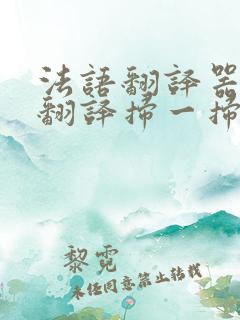 法語翻譯器
翻譯掃一掃
黎霓
未任同意禁止转载